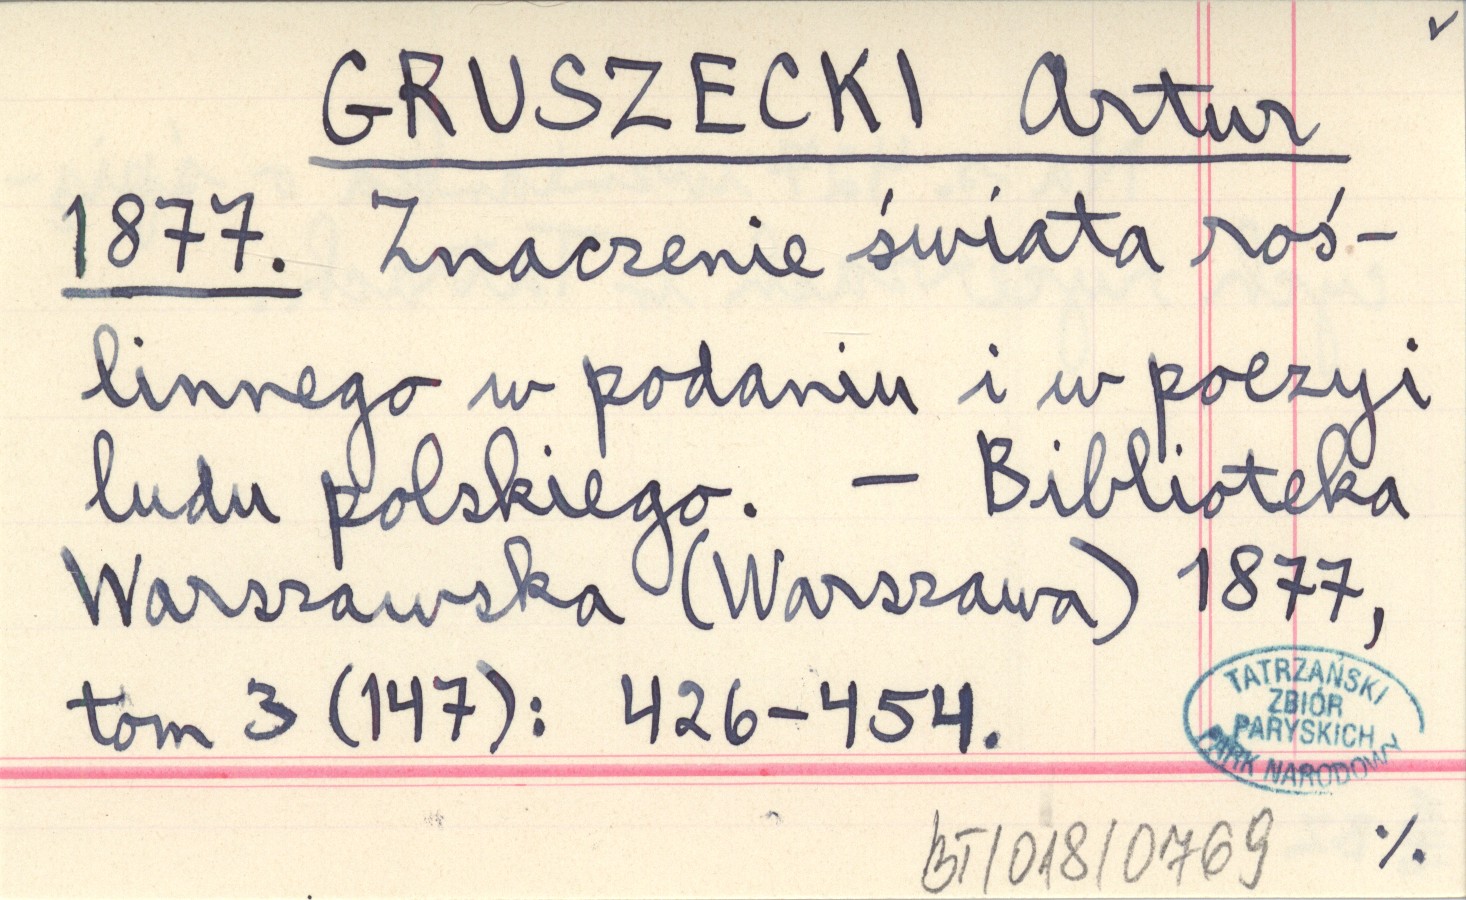 GRUSZECKI Artur
1877. Znaczenie świata roś-
linnego w podaniu i w poezyi
ludu polskiego. – Biblioteka
Warszawska (Warszawa) 1877,
tom 3 (147): 426-454.
TATRZAŃSKI
ZBIÓR
PARYSKICH
PARK NARODOWY
BT/018/0769
./.